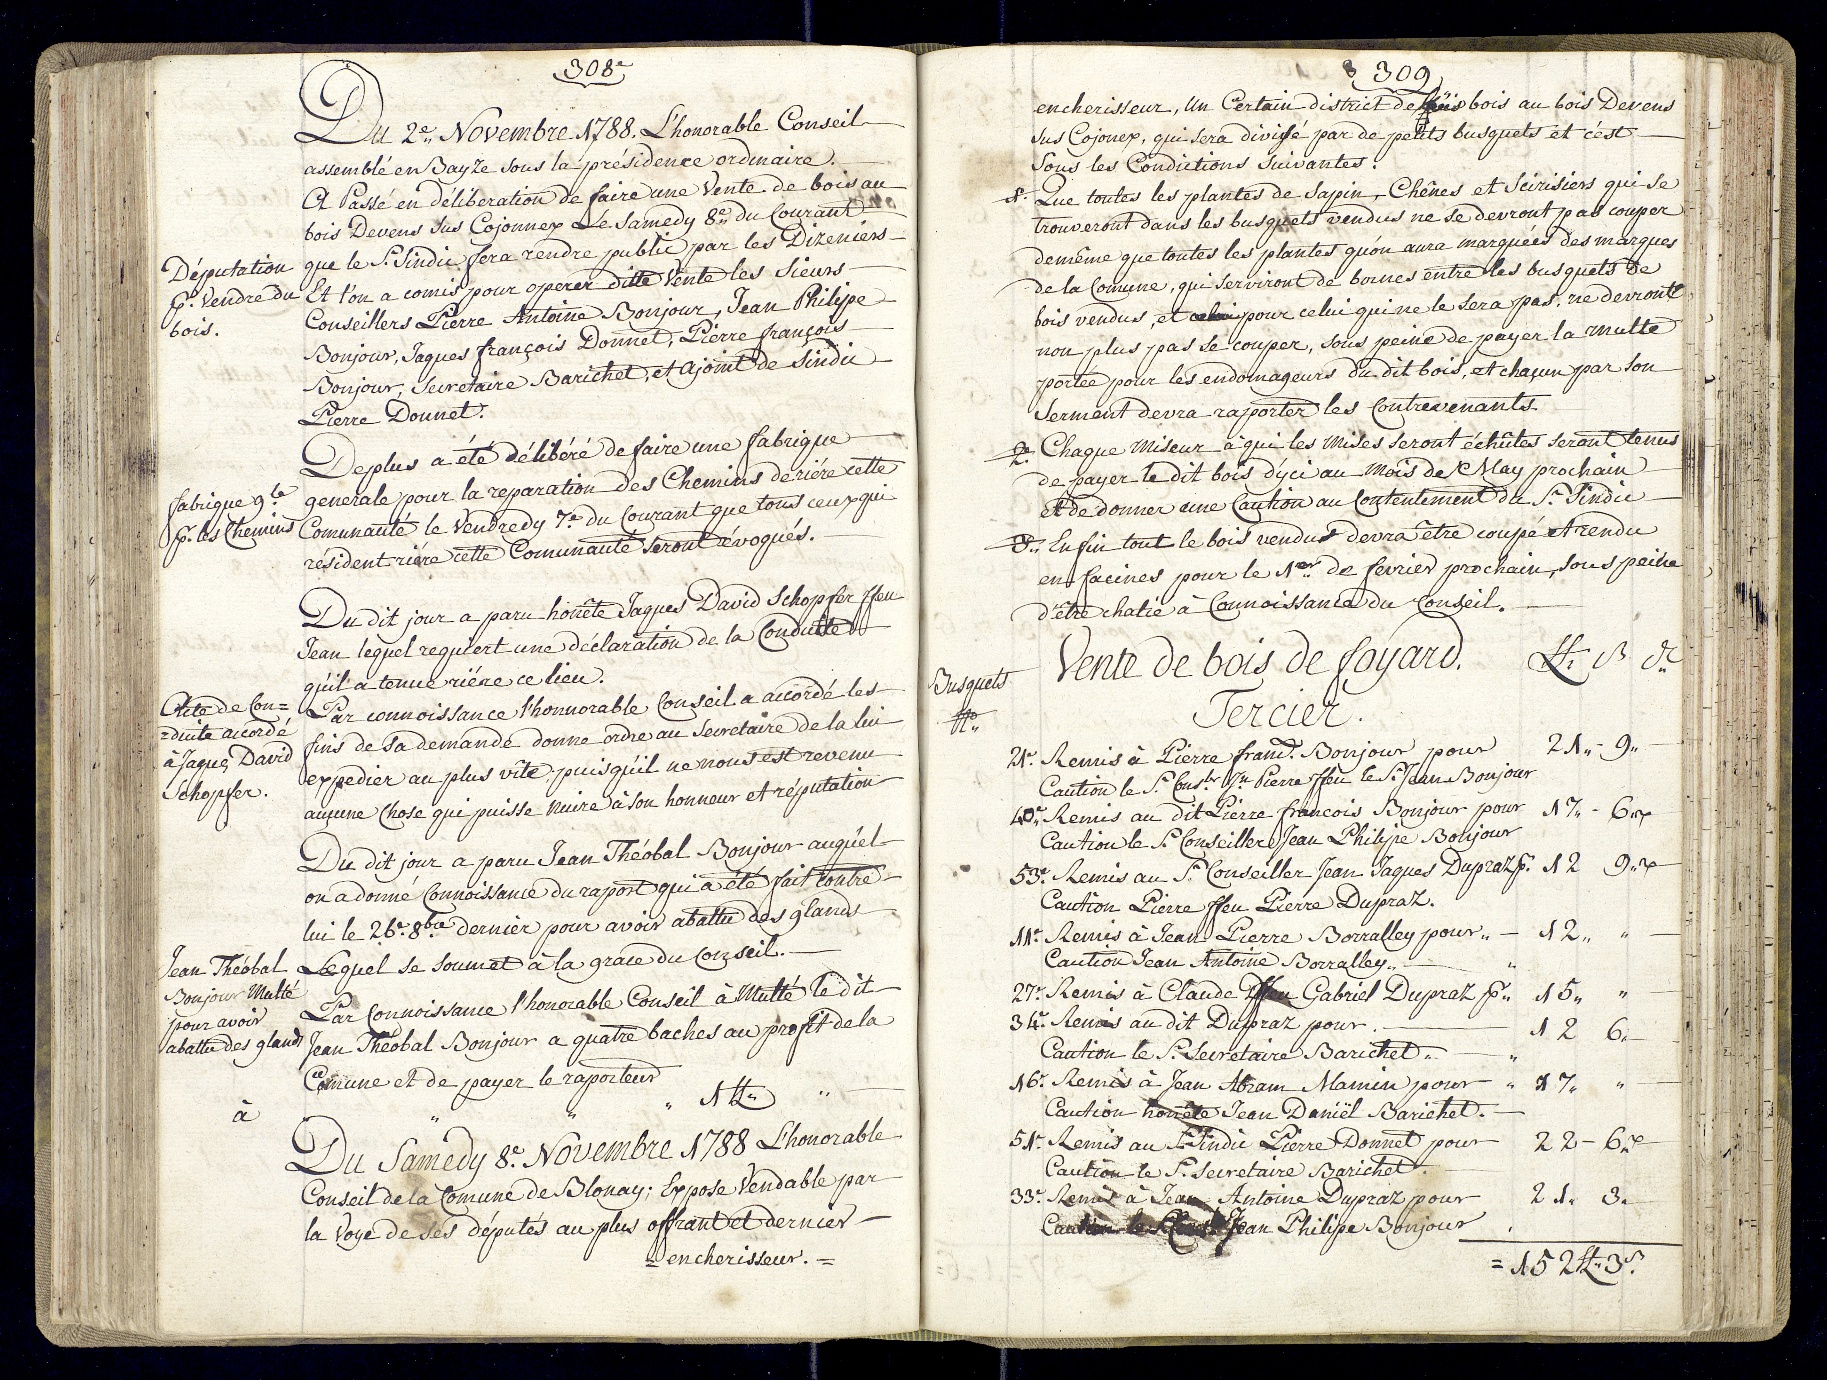 308e
Du 2e Novembre 1788. L'honorable Conseil
assemblé en Bayze sous la présidence ordinaire.
A Passé en déliberation de faire une Vente de bois au
bois Devens sus Cojonnex Le Samedy 8e du Courant
que le Sr. Sindic fera rendre public par les Dizeniers
Députation
pr. Vendre du
bois.
Et l'on a comis pour operer ditte Vente les Sieurs
Conseillers Pierre Antoine Bonjour, Jean Philipe
Bonjour, Jaques françois Donnet, Pierre françois
Bonjour, Secretaire Barichet, et Ajoint de Sindic
Pierre Donnet.
Deplus a été délibéré de faire une fabrique
generale pour la reparation des Chemins deriére cette
fabrique gle
pr. les Chemins
Comunauté le Vendredy 7e du Courant que tous ceux qui
résident riére cette Comunauté seront évoqués.
Du dit jour a paru honête Jaques David Schopfer ffeu
Jean lequel requiert une déclaration de la Conduitte
qu'il a tenue riére ce lieu.
Acte de Con=
=duite accordé
à Jaques David
Schopfer.
Par connoissance l'honnorable Conseil a accordé les
fins de sa demande donne ordre au Secretaire de la lui
expedier au plus vîte, puisqu'il ne nous est revenu
aucune Chose qui puisse nuire à son honneur et réputation
Du dit jour a paru Jean Théobal Bonjour auquel
on a donné Connoissance du raport qui a été fait contre
lui le 26e 8bre dernier pour avoir abattu des glands
Lequel se soumet à la grace du Conseil.
Jean Théobal
Bonjour Multé
pour avoir
abattu des glands
Par Connoissance l'honorable Conseil à Multé le dit
Jean Théobal Bonjour a quatre baches au profit de la
Comune et de payer le raporteur
à " " " 1 ff " "
Du Samedy 8e Novembre 1788 L'honorable
Conseil de la Comune de Blonay; Expose Vendable par
la Voye de ses députés au plus offrant et dernier
= encherisseur. =
309
encherisseur, Un Certain district de bois au bois Devens
sus Cojonex, qui sera divisé par de petits busquets et c'est
Sous les Condictions suivantes.
1. Que toutes les plantes de sapin, Chênes et Seirisiers qui se
trouveront dans les busquets vendus ne se devront pas couper
demême que toutes les plantes qu'on aura marquées des marques
de la Comune, qui serviront de bornes entre les busquets de
bois vendus, et pour celui qui ne le sera pas, ne devront
non plus pas se couper, sous peine de payer la multe
portée pour les endomageurs du dit bois, et chaqun par son
serment devra raporter les Contrevenants
2e. Chaque Miseur à qui les Mises seront échûtes seront tenus
de payer le dit bois d'yci au Mois de May prochain
et de donner une Caution au Contentement du Sr. Sindic
3e. Enfin tout le bois vendus devra être coupé et rendu
en facines pour le 1er de fevrier prochain, sous peine
d'être chatié à Connoissance du Conseil.
Vente de bois de foyard. ff. s d.
Busquets
No.
Tercier.
21e. Remis à Pierre frans. Bonjour pour 21 " - 9 "
Caution le Sr. Conser. Jn Pierre ffeu le Sr. Jean Bonjour
40e. Remis au dit Pierre francois Bonjour pour 17 " - 6 "
Caution le Sr. Conseiller Jean Philipe Bonjour
53e. Remis au Sr. Conseiller Jean Jaques Dupraz pr. 12 9 "
Caution Pierre ffeu Pierre Dupraz.
11e. Remis à Jean Pierre Borralley pour " - 12 " "
Caution Jean Antoine Borralley " "
27e. Remis à Claude ffeu Gabriel Dupraz pr " 15 " "
34e. Remis au dit Dupraz pour . 12 6 "
Caution le Sr. Secretaire Barichet " "
16e. Remis à Jean Abram Mamin pour " 17 " "
Caution honête Jean Daniël Barichet.
51e. Remis au Sr. Sindic Pierre Donnet pour 22 - 6 "
Caution le Sr. Secretaire Barichet.
33e. Remis à Jean Antoine Dupraz pour 21 " 3 "
Caution le Sr. Consr. Jean Philipe Bonjour
= 152 ff " 3 s.